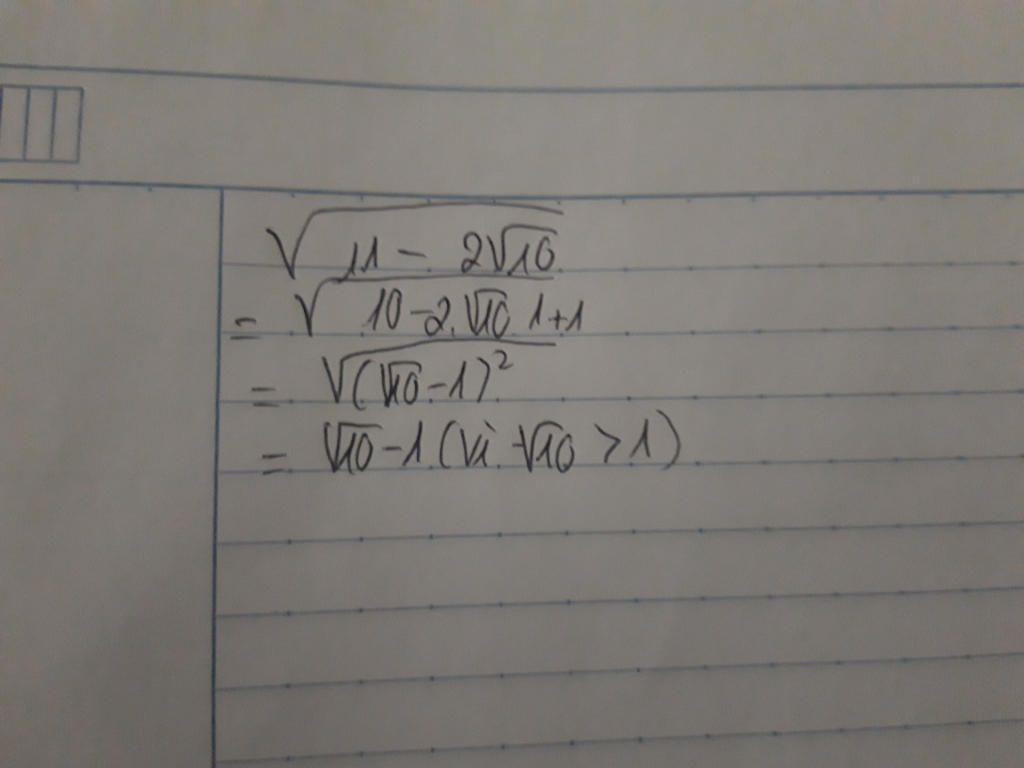 √(11 - 2√10)
= √(10 - 2.√10.1+1)
= √(√10 - 1)²
= √10 - 1 (vì √10 > 1)